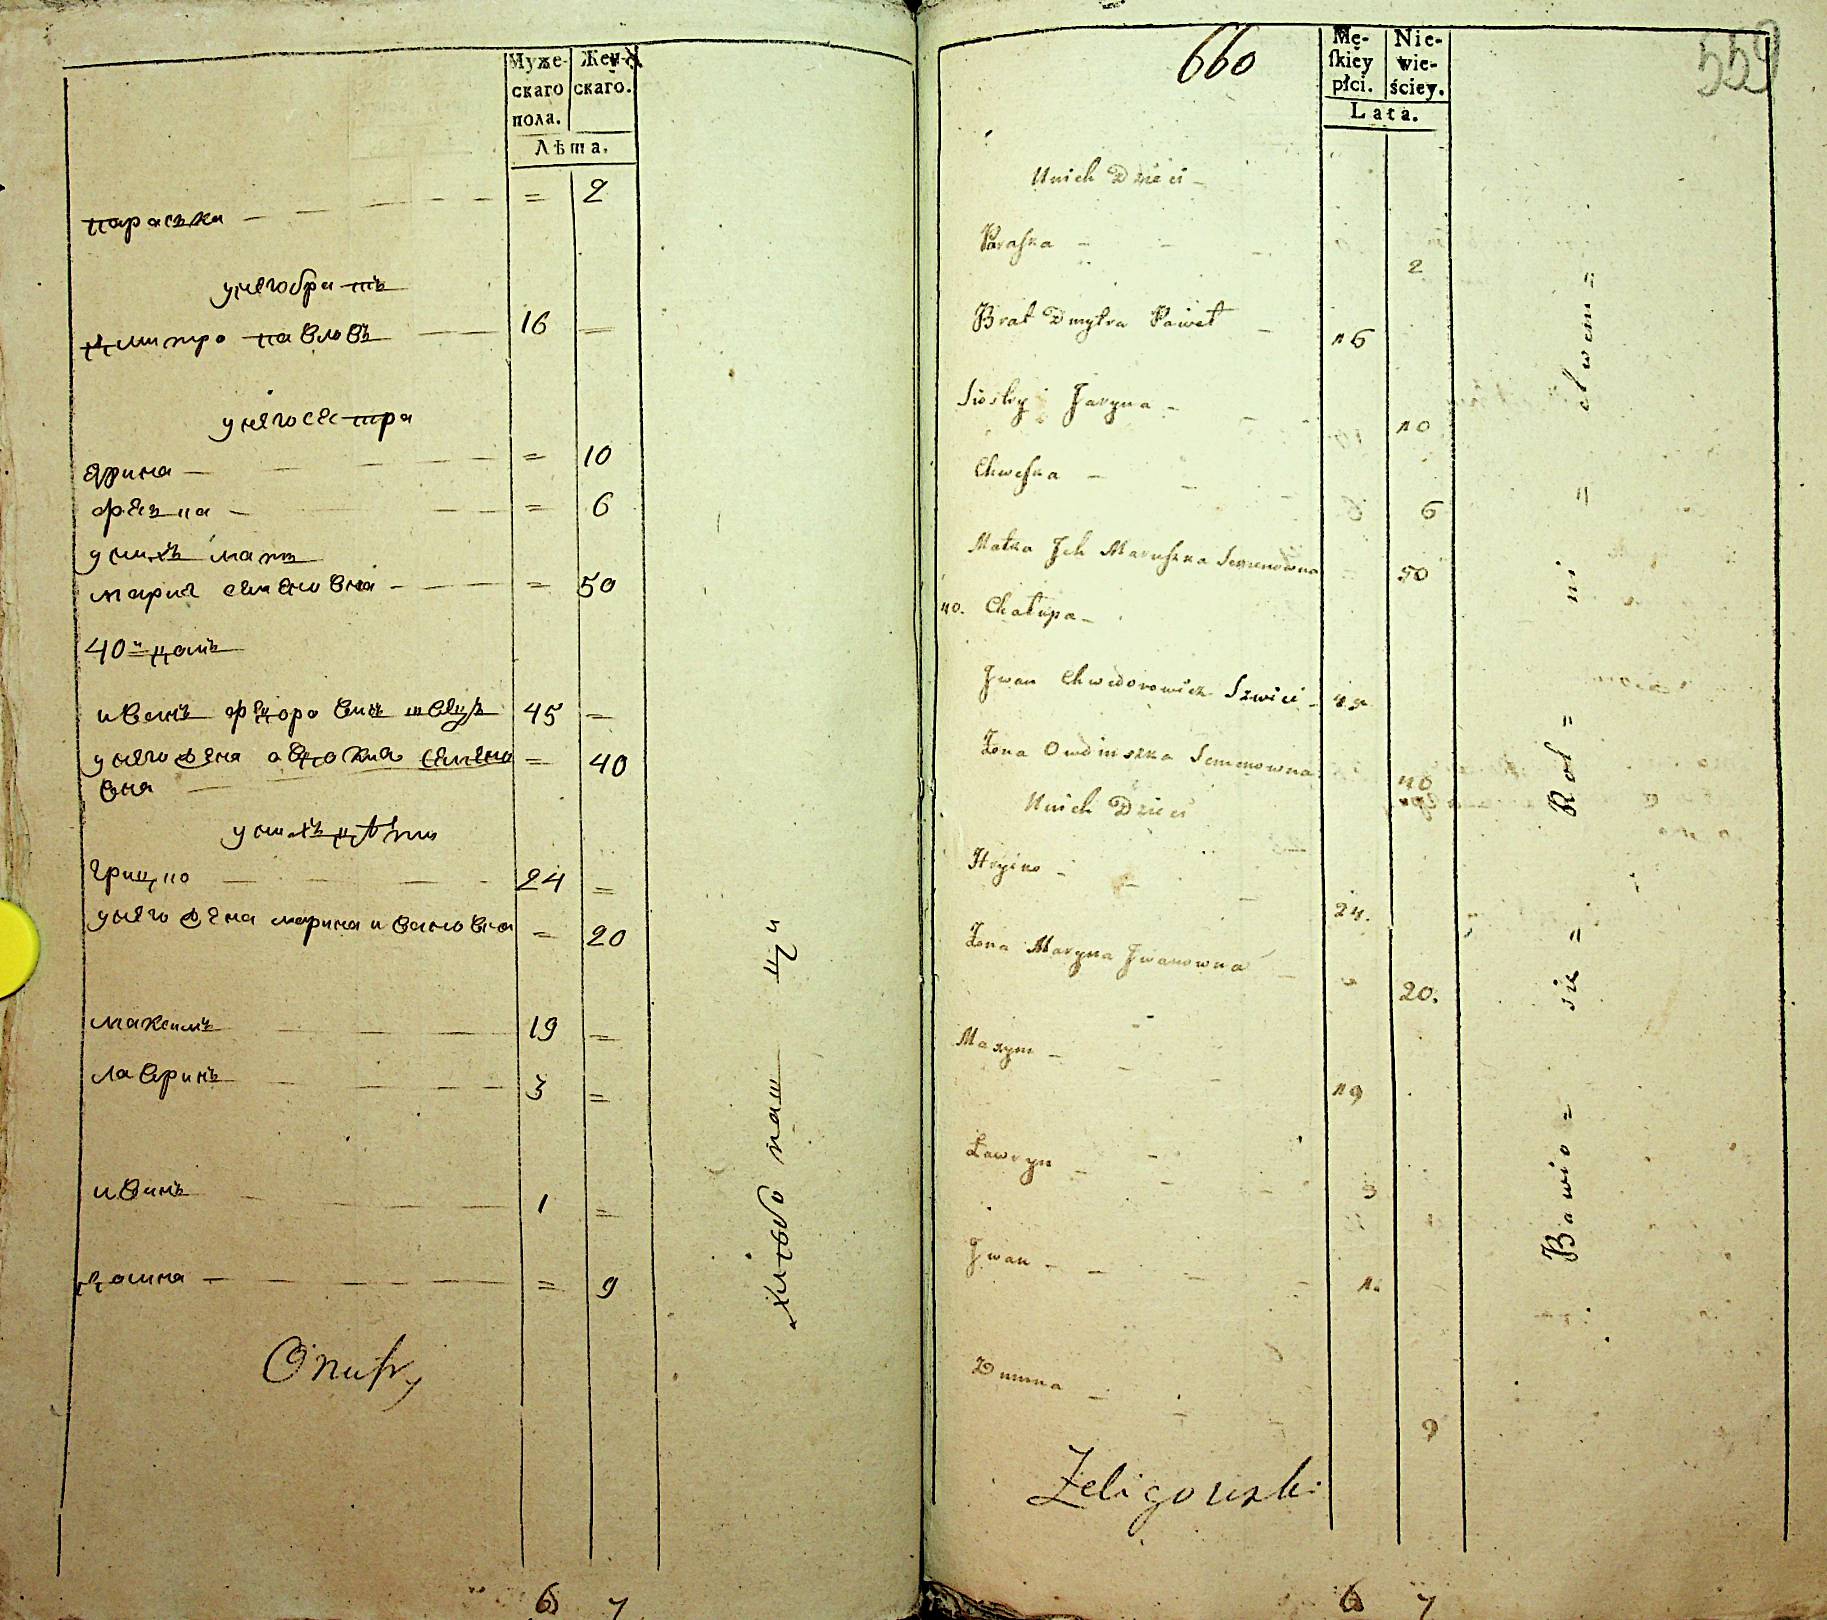 Муже-
скаго
пола.
Жен-
скаго.
Лѣта.
параска = 2
унего братъ
дмитро павловъ 16 =
унего сестра
ярина = 10
фезка = 6
унихъ мать
мария семеновна = 50
40й домъ
иванъ федоровичъ швецъ 45 =
унего жена авдокия семено = 40
вна
унихъ дѣти
грицко 24 =
унего жена марина ивановна = 20
максимъ 19 =
лавринъ 3 =
иванъ 1 =
домна = 9
хлѣбопашцы
Onufry
6 7
660
559
Mę-
skiey
płci.
Nie-
wie-
ściey.
Lata.
Unich Dzieci
Paraska 2
Brat Dmytra Paweł 16
Siostry Jaryna 10
Chweska 6
Matka Ich Maruszka Semenowna 50
40. Chałupa
Jwan Chwedorowicz Szwiec 45
Żona Owdiuszka Semenowna 40
Unich Dzieci
Hryćko 24.
Żona Maryna Jwanowna 20.
Maxym 19
Ławryn 3
Jwan 1.
Dumna 9
Bawio = sie = Rol = ni = ctwem =
Żeligowski
6 7